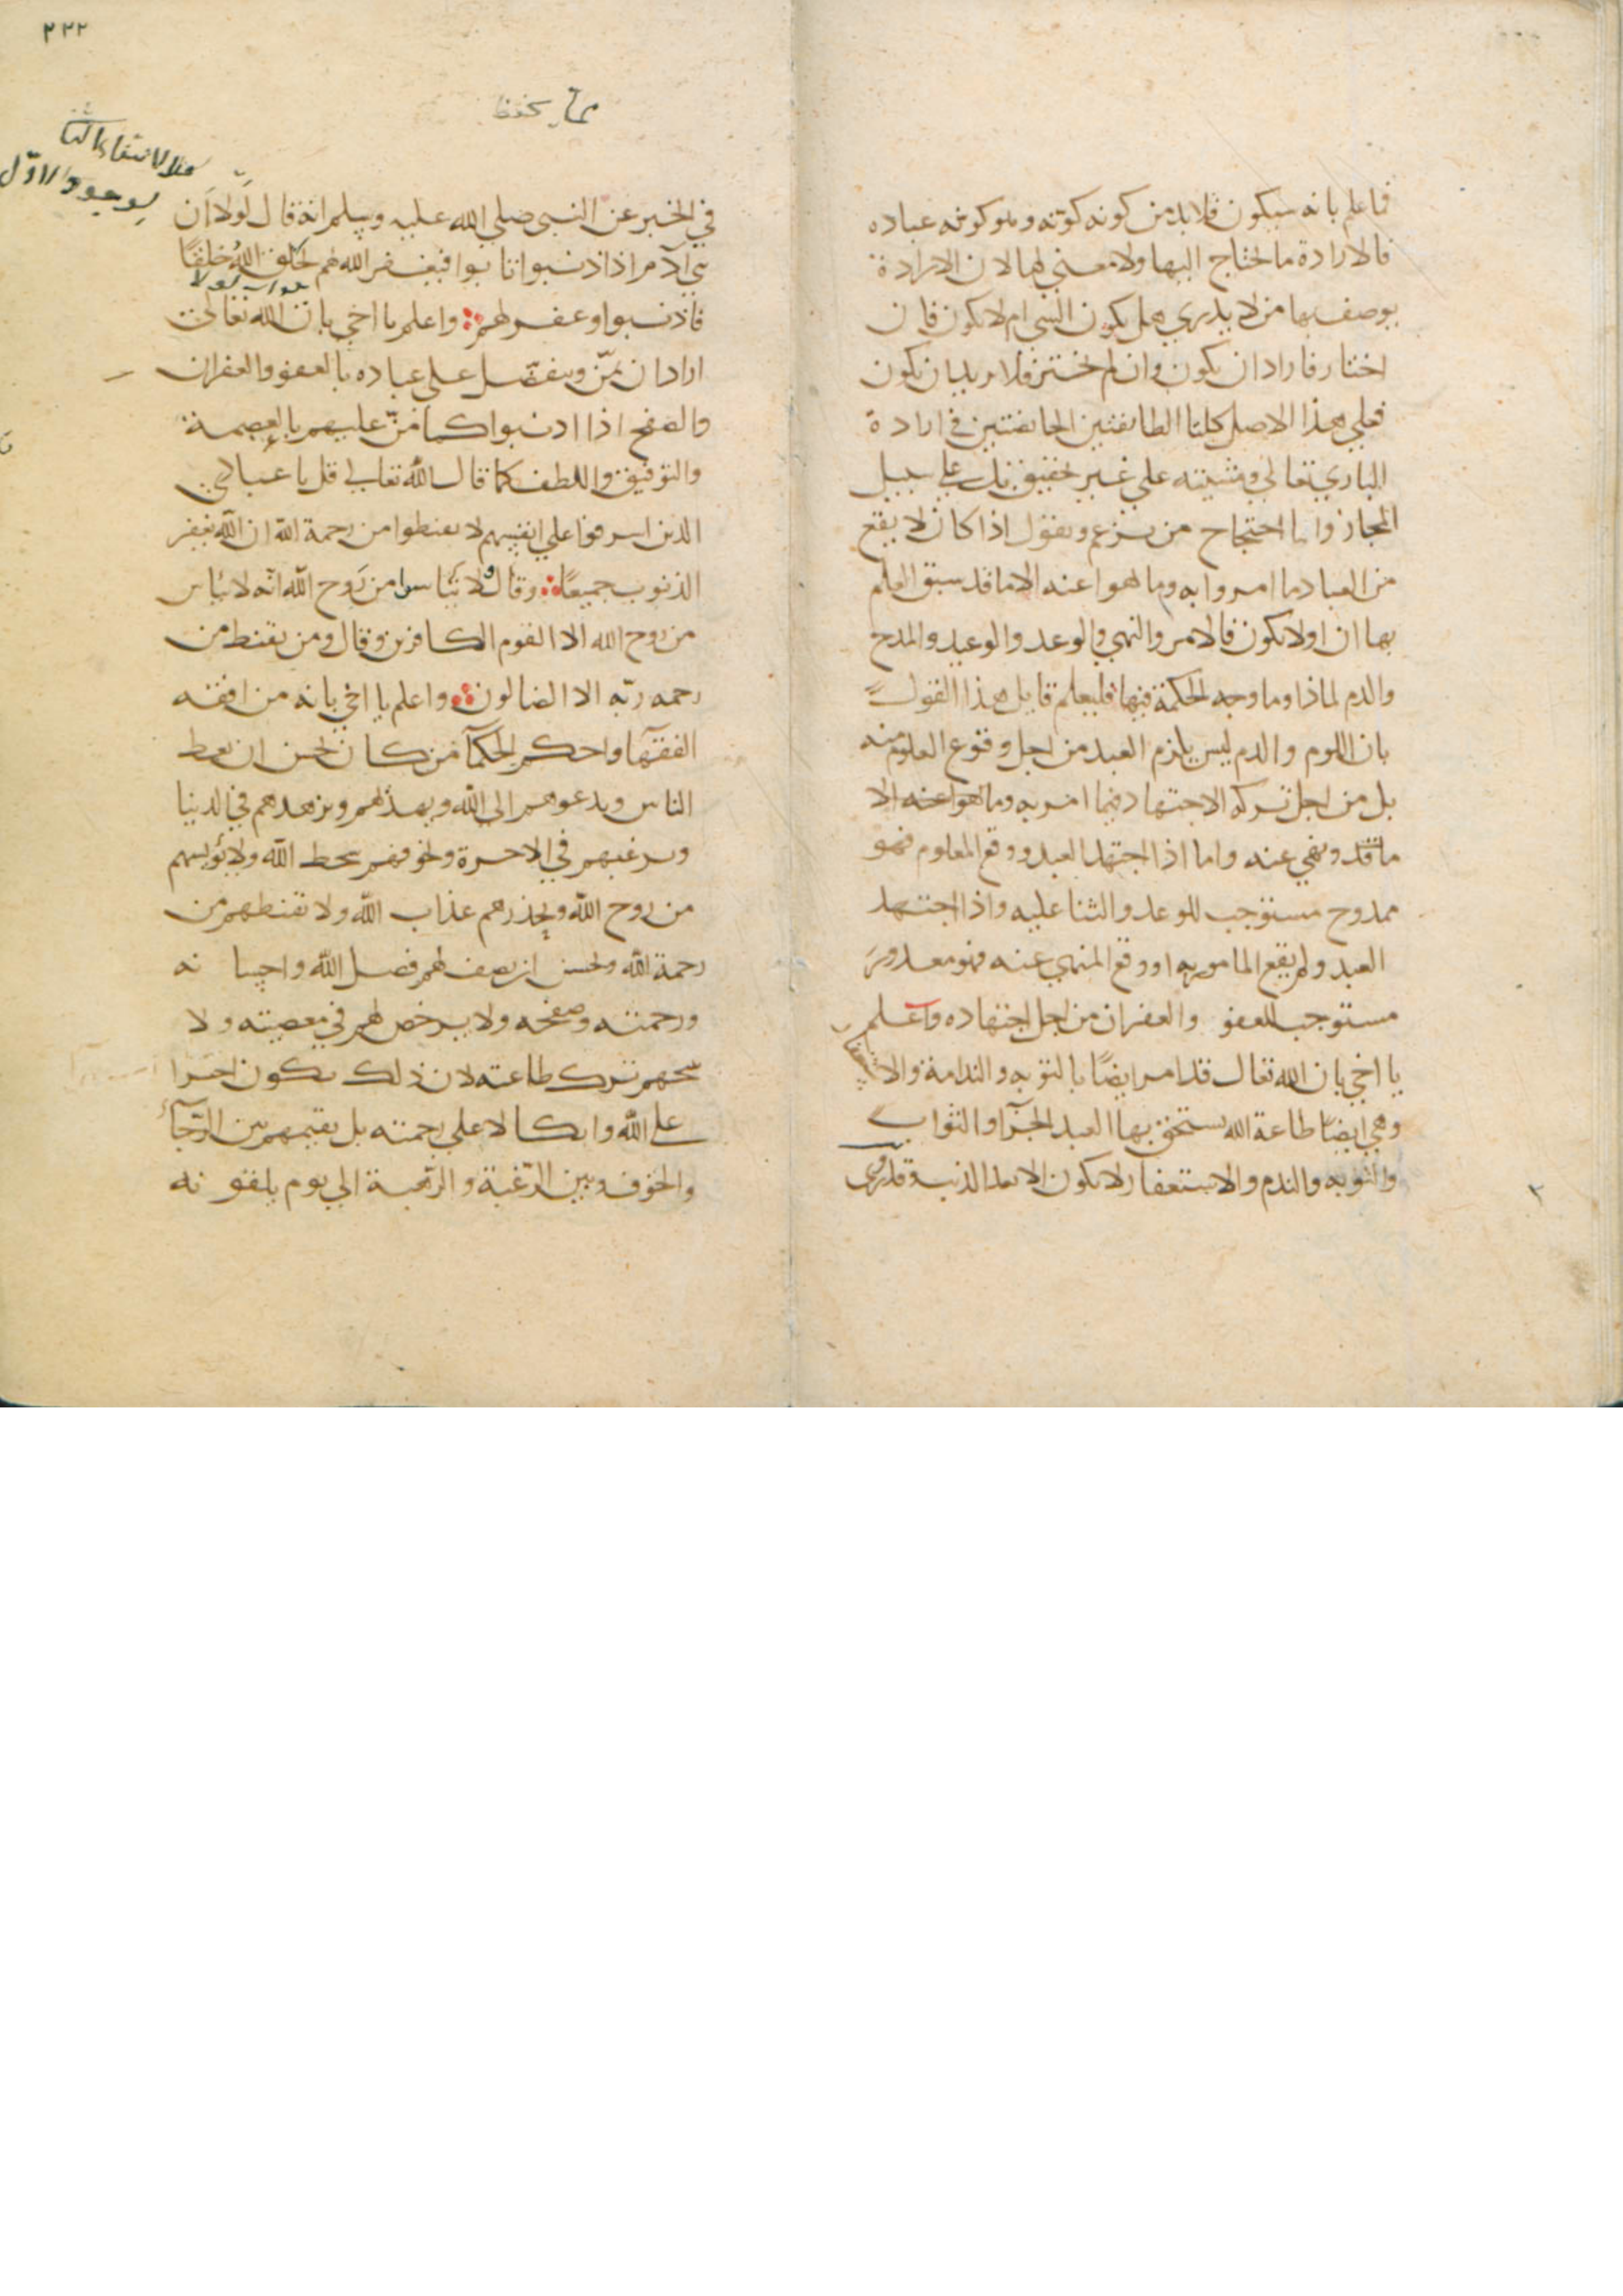 فما علم بانه سيكون فلا بد من كونه كونه وملوكونه عباده
فالارادة ما يحتاج اليها ولا معني لها لان الارادة
يوصف بها من لا يدري هل يكون الشي ام لا يكون فان
اختار فاراد ان يكون وان لم يختر فلا يريد ان يكون
فعلي هذا الاصل كلتا الطائفتين في ارادة
الباري تعالي ومشيته علي غير حقيق بل علي سبيل
المجاز واما احتجاج من يزعم ويقول اذا كان لا يقع
من العباد ما امروا به وما نهوا عنه الا ما قد سبق العلم
بها ان اولا يكون فالامر والنهي والوعد والوعيد والمدح
والذم لماذا وما وجه الحكمة فيها فليعلم قايل هذا القول
بان اللوم والذم ليس يلزم العبد من اجل وقوع المعلوم منه
بل من اجل تركه الاجتهاد فيما امر به وما نهوا عنه الا
ما قد ونهي عنه واما اذا اجتهد العبد ووقع المعلوم فهو
ممدوح مستوجب للوعد والثنا عليه واذا اجتهد
العبد ولم يقع المامور به او وقع المنهي عنه فهو معذور
مستوجب للعفو والغفران من اجل اجتهاده واعلم
يا اخي بان الله تعال قد امر ايضًا بالتوبه والندامة والاستغفار
وهي ايضًا طاعة الله يستحق بها العبد الجزآ والثواب
والتوبه والندم والاستغفار لا يكون الا بعد الذنب وقد روي
٢٢٢
مما يحفظ
مثلا لانتفاء الثا
لوجود الاول
في الخبر عن النبي صلي الله عليه وسلم انه قال لولا ان
بني آدم اذا اذنبوا تابوا فيغفر الله لهم لخلق الله خلقًا
جواب لولا
فاذنبوا وغفر لهم واعلم يا اخي بان الله تعالي
اراد ان يمنّ ويتفضّل علي عباده بالعفو والغفران
والصفح اذا اذنبوا كما منّ عليهم بالعصمة
والتوفيق واللطف كما قال الله تعالي قل يا عبادي
الذين اسرفوا علي انفسهم لا تقنطوا من رحمة الله ان الله يغفر
الذنوب جميعًا وقال ولا تيأسوا من رَوح الله انه لا ييأس
من روح الله الا القوم الكافرين وقال ومن يقنط من
رحمه ربّه الا الضالون واعلم يا اخي بانه من افقه
الفقهآ واحكم الحكمآ من كان يحسن ان يعظ
الناس ويدعوهم الي الله ويزهدهم في الدنيا
ويرغبهم في الاخرة ويخوفهم سخط الله ولا يؤيسهم
من روح الله ويحذرهم عذاب الله ولا تقنطهم من
رحمة الله ويحسن ان يصف لهم فضل الله واحسا نه
ورحمته وصفحه ولا يرخص لهم في معصيته ولا
ترك طاعته لان ذلك يكون اجترا
علي الله واتكالا علي رحمته بل يقيمهم بين الرّجآء
والخوف وبين الرّغبة والرّهبة الي يوم يلقو نه